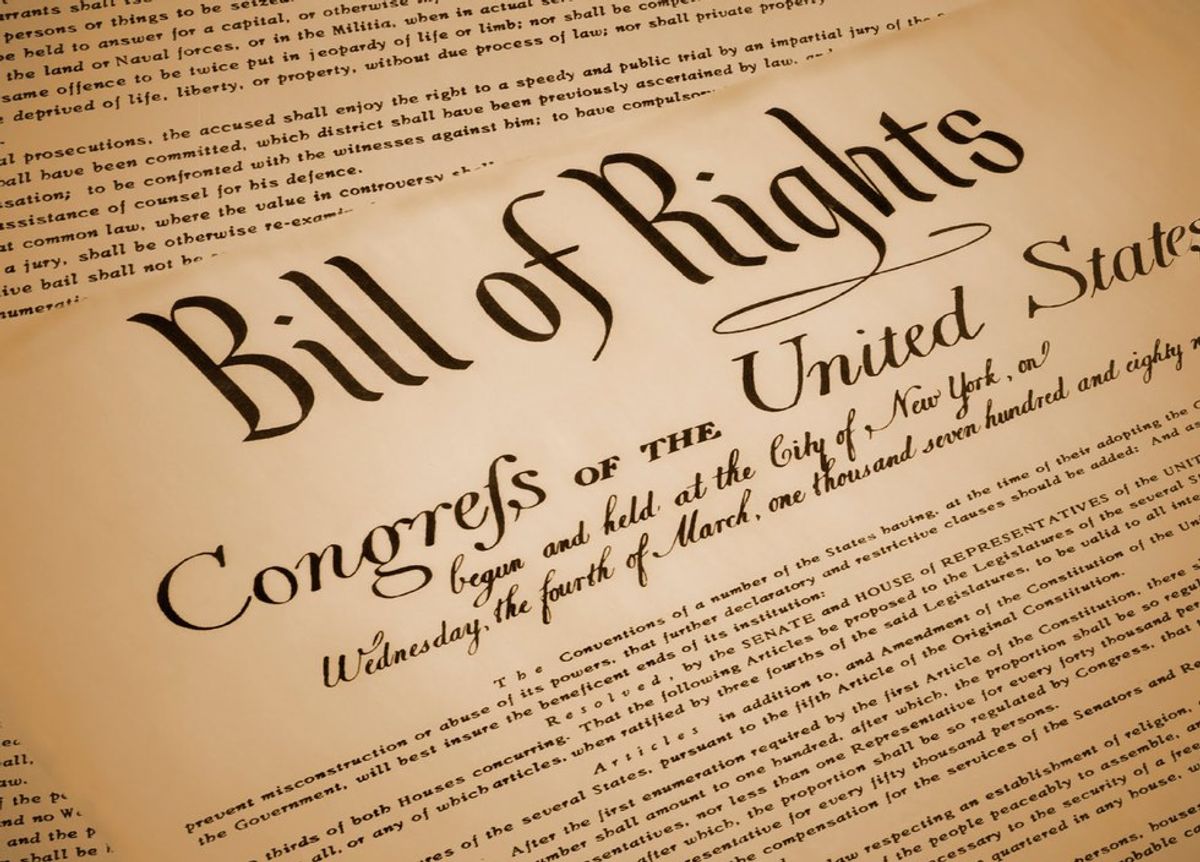 persons or things to be seized.
be held to answer for a capital, or otherwise
the land or Naval forces, or in the Militia, when in actual
same offence to be twice put in jeopardy of life or limb; nor shall be
deprived of life, liberty, or property, without due process of law; nor shall private property
prosecutions, the accused shall enjoy the right to a speedy and public trial by an impartial jury of the
have been committed, which district shall have been previously ascertained by law,
to be confronted with the witnesses against him; to have
assistance of counsel for his defence.
at common law, where the value in controversy
a jury, shall be otherwise
bail shall not be
Bill of Rights
Congreſs OF THE United States
begun and held at the City of New York, on
Wednesday, the fourth of March, one thousand seven hundred and eighty
The Conventions of a number of the States having, at the time of their adopting the
prevent misconstruction or abuse of its powers, that further declaratory and restrictive clauses should be added: And as
the Government, will best insure the beneficent ends of its institution:
Resolved, by the SENATE and HOUSE of REPRESENTATIVES of the
thirds of both Houses concurring. That the following Articles be proposed to the Legislatures of the several
all, or any of which articles, when ratified by three fourths of the said Legislatures, to be valid to all
Articles in addition to, and Amendment of the Constitution of the
of the several States, pursuant to the fifth Article of the Original Constitution.
After the first enumeration required by the first Article of the Constitution, there
shall amount to one hundred, after which, the proportion shall be so
nor less than one Representative for every forty thousand
after which, the proportion shall be so regulated by Congress, that
for every fifty thousand persons.
compensation for the services of the Senators and
respecting an establishment of religion,
of the people peaceably to assemble,
to the security of a
quartered in any house,
persons,